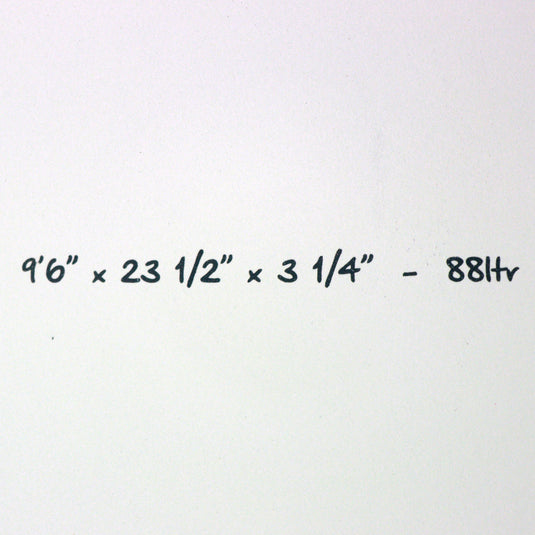 9'6" x 23 1/2" x 3 1/4" - 88ltr